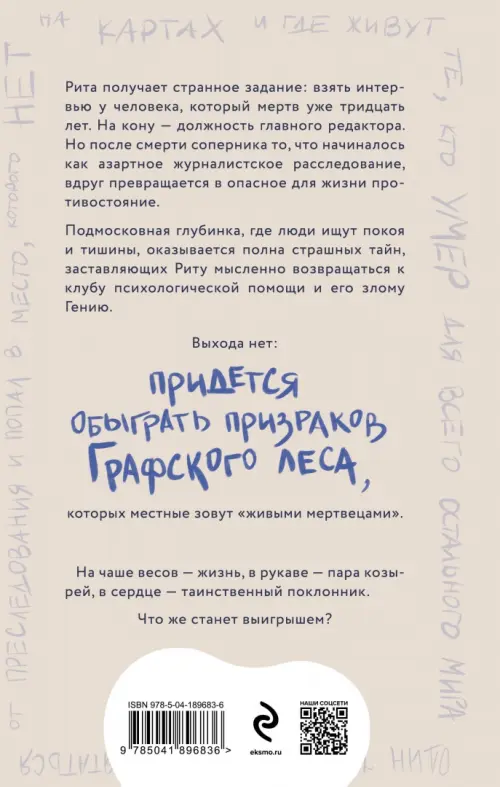 НА КАРТАХ И ГДЕ ЖИВУТ
ТЕ, КТО УМЕР ДЛЯ ВСЕГО ОСТАЛЬНОГО МИРА
Рита получает странное задание: взять интер-
вью у человека, который мертв уже тридцать
лет. На кону — должность главного редактора.
Но после смерти соперника то, что начиналось
как азартное журналистское расследование,
вдруг превращается в опасное для жизни про-
тивостояние.
Подмосковная глубинка, где люди ищут покоя
и тишины, оказывается полна страшных тайн,
заставляющих Риту мысленно возвращаться к
клубу психологической помощи и его злому
Гению.
Выхода нет:
ПРИДЕТСЯ
ОБЫГРАТЬ ПРИЗРАКОВ
ГРАФСКОГО ЛЕСА,
которых местные зовут «живыми мертвецами».
На чаше весов — жизнь, в рукаве — пара козы-
рей, в сердце — таинственный поклонник.
Что же станет выигрышем?
ISBN 978-5-04-189683-6
9 785041 896836 >
eksmo.ru
НАШИ СОЦСЕТИ
ОДИН
ОТ ПРЕСЛЕДОВАНИЯ И ПОПАЛ В МЕСТО, КОТОРОГО НЕТ